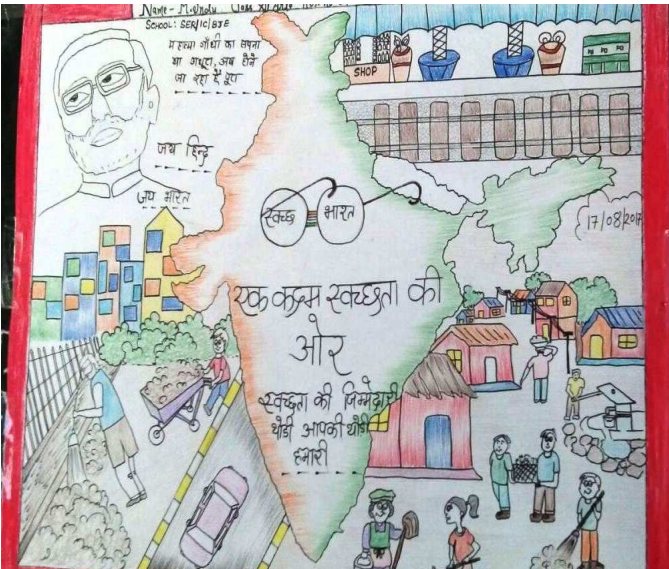 Name - M. Indu
SCHOOL: SER/IC/BJE
महात्मा गाँधी का सपना
था अधूरा, अब होने
जा रहा है पूरा
जय हिन्द
जय भारत
SHOP
स्वच्छ भारत
17/08/2017
एक कदम स्वच्छता की
ओर
स्वच्छता की जिम्मेदारी
थोडी आपकी थोडी
हमारी